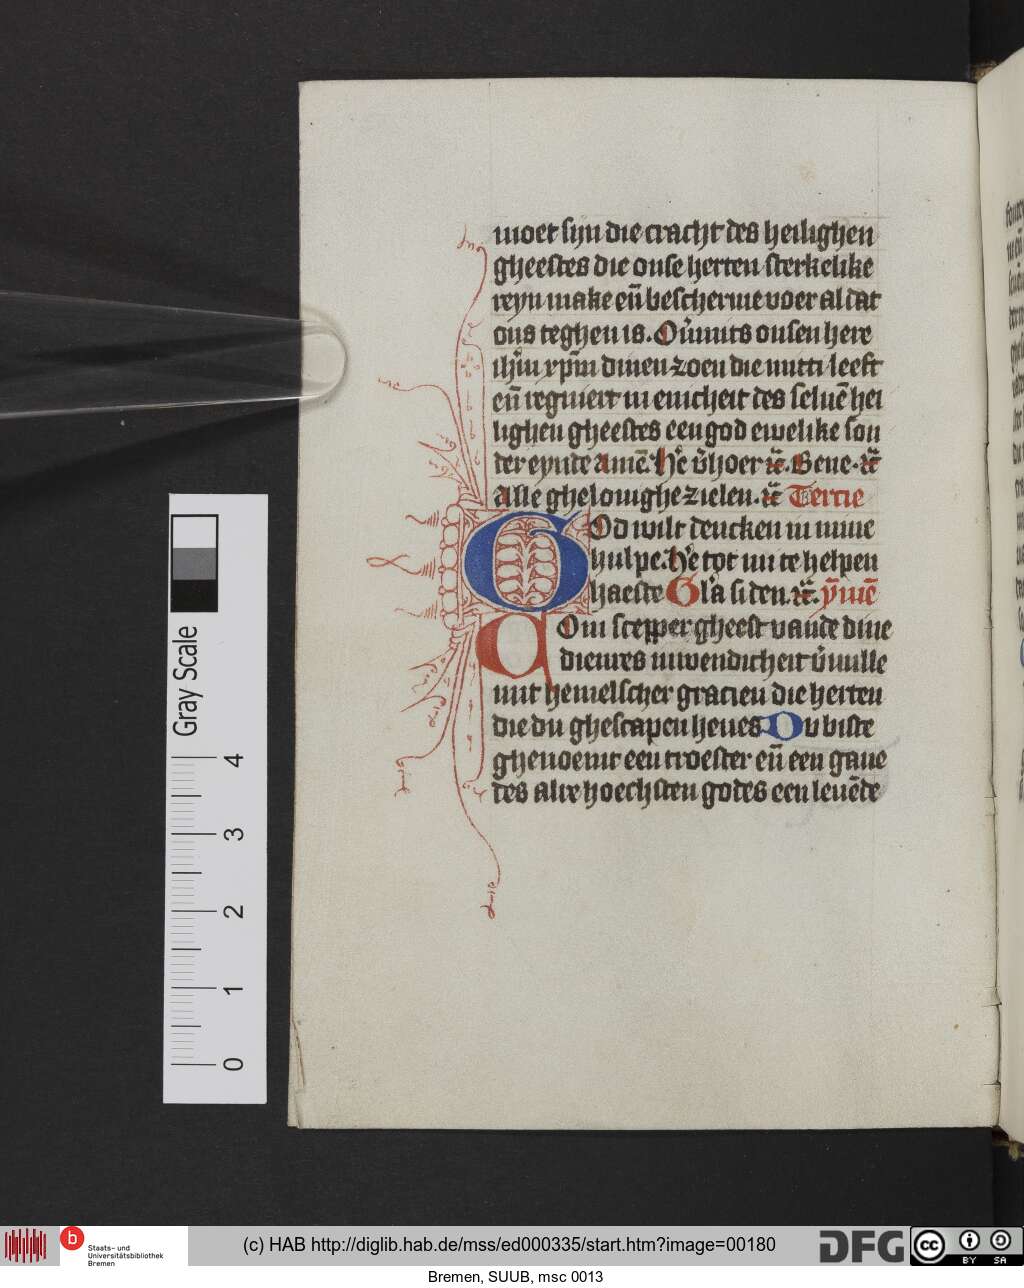 moet sijn die cracht des heilighen
gheestes die onse herten sterkelike
reyn make en̄ bescherme voer al dat
ons teghen is. Ou̅mits onsen here
ihm̄ xpm̄ dinen zoen die mitti leeft
en̄ regniert in enicheit des seluē hei
lighen gheestes een god ewelike son
der eynde amē. Hē v̄hoer ꝛc̄. Bene. ꝛc̄
Alle ghelouighe zielen. ꝛc̄ Tercie
God wilt dencken in mine
hulpe. Hē tot mi te helpen
haeste Gl'a si den. ꝛc̄. ym̄e
Com scepper gheest vande dine
dienres inwendicheit v̄uulle
mit hemelscher gracien die herten
die du ghescapen heues Du biste
ghenoemt een troester en̄ een gaue
des alre hoechsten godes een leuēde
Gray Scale
4
3
2
1
0
b Staats- und
Universitätsbibliothek
Bremen
(c) HAB http://diglib.hab.de/mss/ed000335/start.htm?image=00180
DFG
cc BY SA
Bremen, SUUB, msc 0013